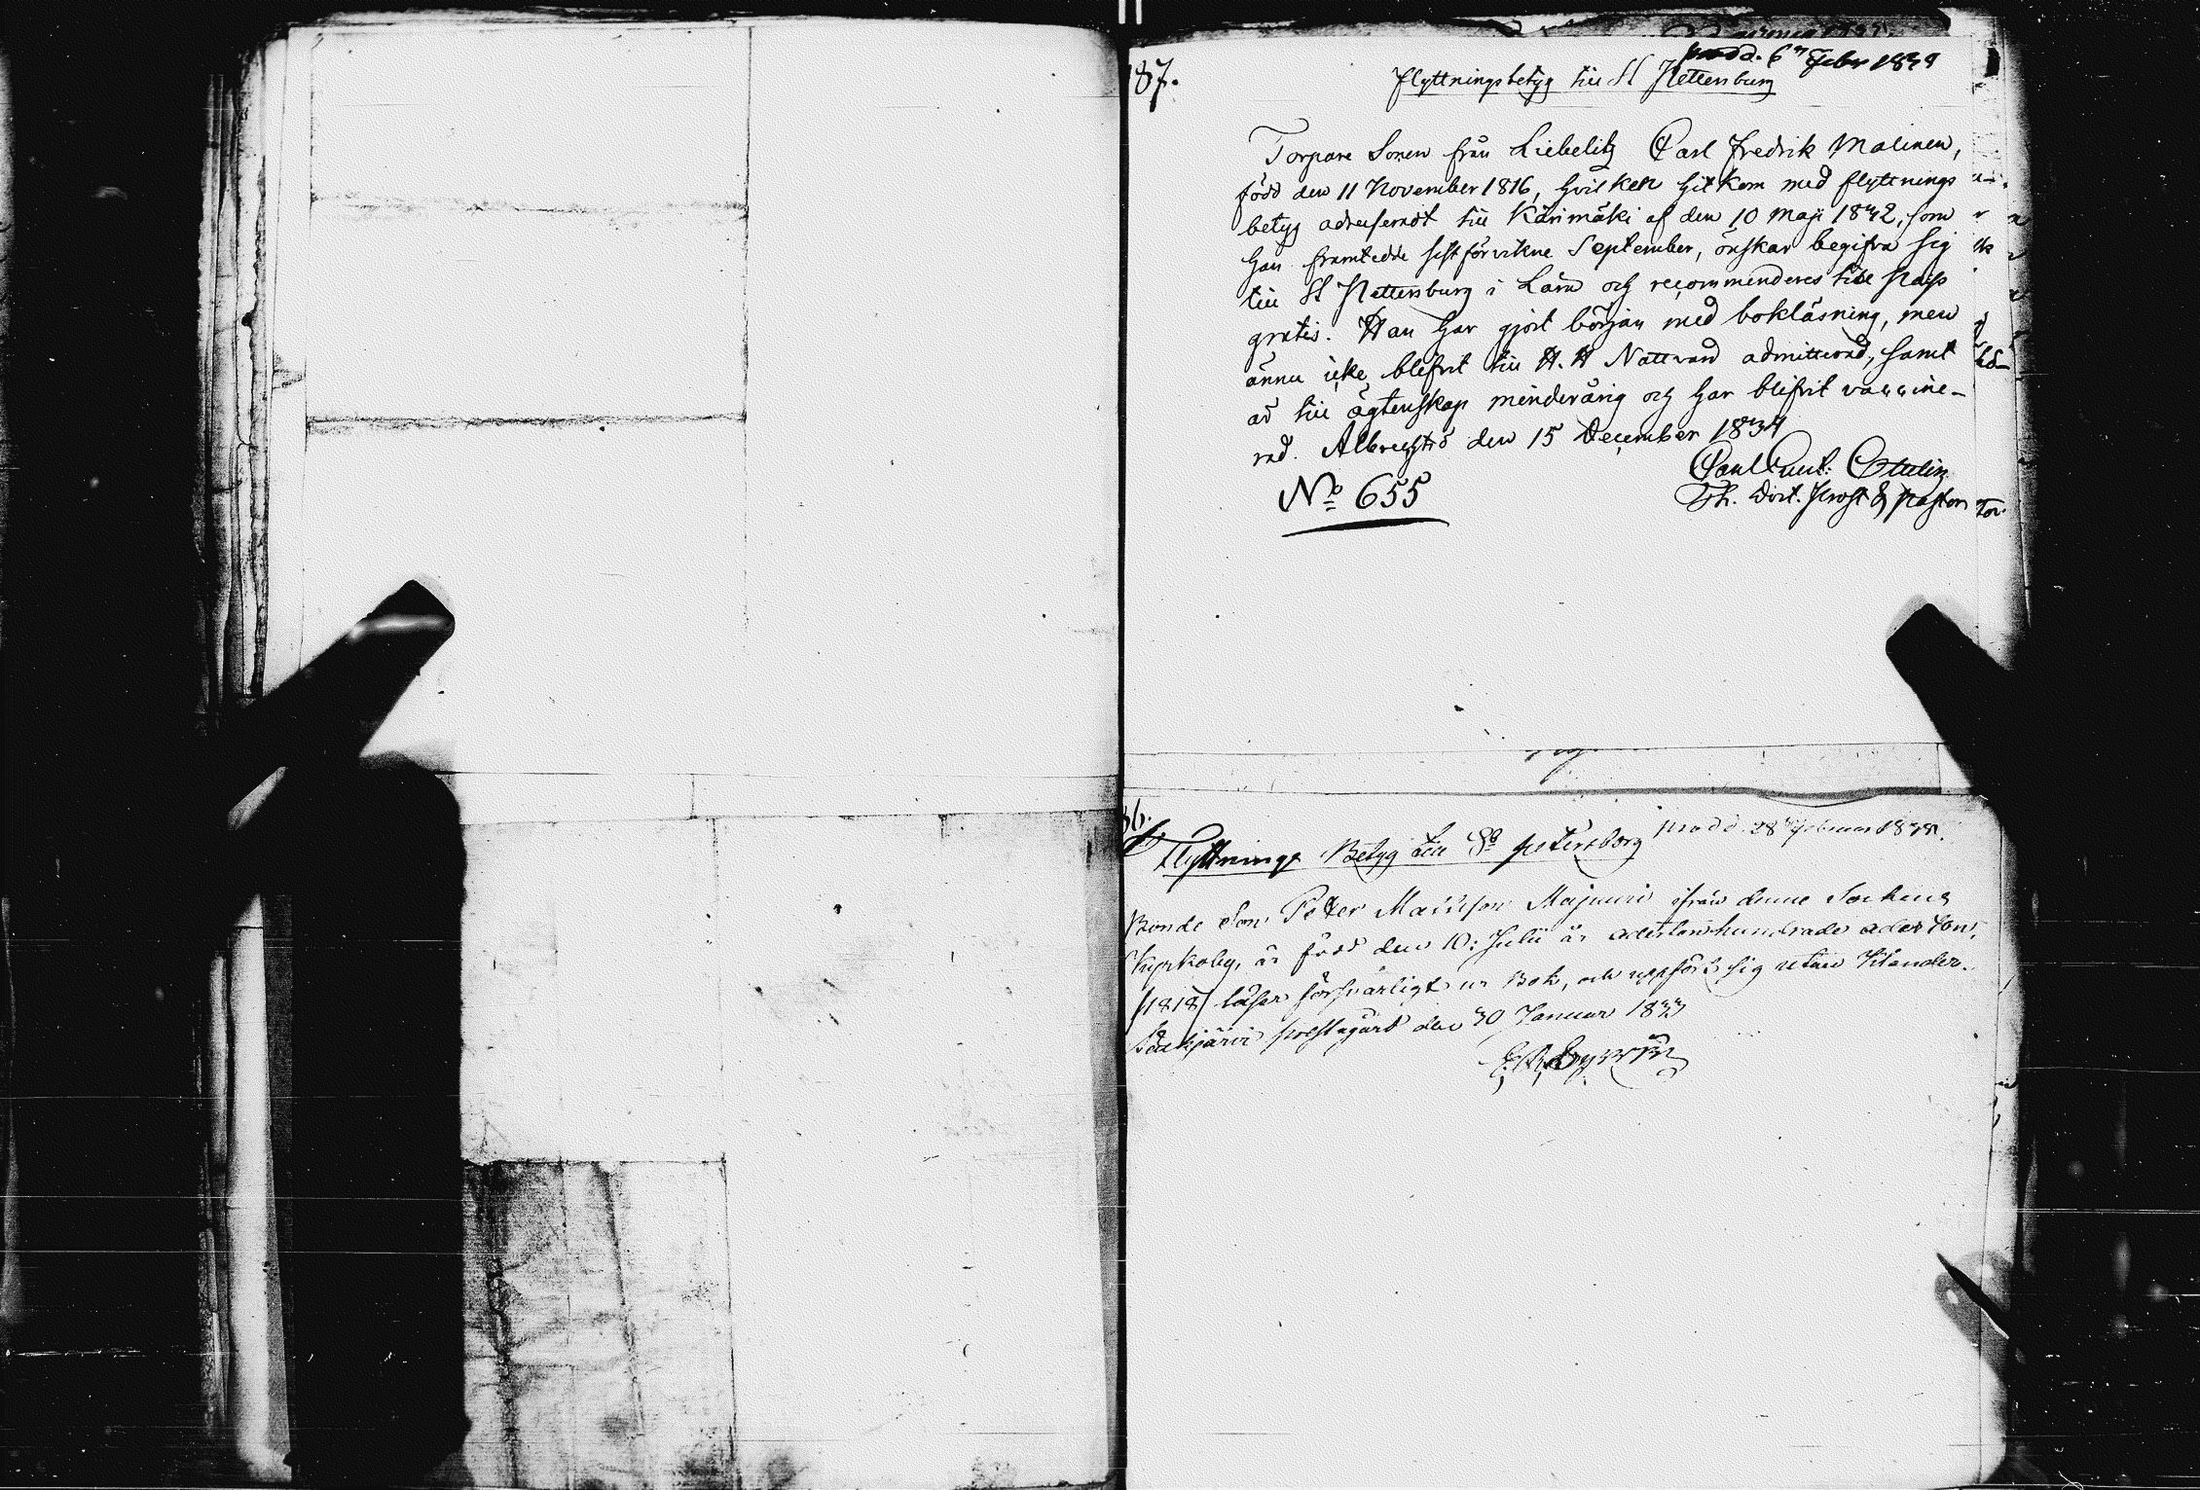 187.
prodd. 6n Febr 1834
Flyttningsbetyg till St Pettersburg
Torpare Sonen från Liebelitz Carl Fredrik Malinen,
född den 11 November 1816, hvilken hitkom med flyttnings
betyg adresseradt till Kärimäki af den 10 Maji 1832, som
han framtedde sistförvikne September, önskar begifva sig
till St Pettersburg i Lära och recommenderes till Pass
gratis. Han har gjort början med bokläsning, men
ännu icke blifvit till H. H Nattvard admitterad, samt
är till ägtenskap minderårig och har blifvit vaccine-
rad. den 15 December 1833
No 655
Th. Doct. Prost & Pastor
36.
Flyttnings Betyg till St Petersborg
prodd. 28 Februar 183
Bonde Son Peter Mattsson Majuuri ifrån denne Sockens
Kyrkoby, är född den 10: Julii år adertonhundrade aderton,
/1818/ läser försvarligt i Bok, och uppfört sig utan klander.
Säkjärvi prestgård den 30 Januar 1833